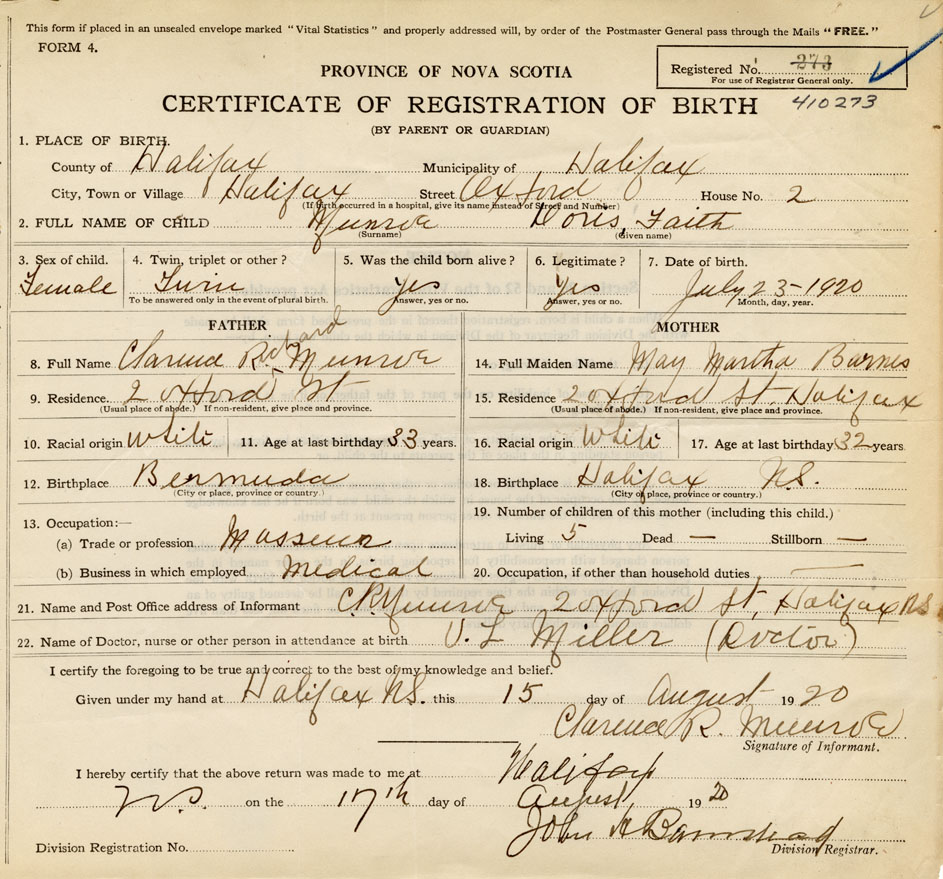 This form if placed in an unsealed envelope marked "Vital Statistics" and properly addressed will, by order of the Postmaster General pass through the Mails "FREE."
FORM 4.
Registered No. 273
For use of Registrar General only.
PROVINCE OF NOVA SCOTIA
CERTIFICATE OF REGISTRATION OF BIRTH 410273
(BY PARENT OR GUARDIAN)
1. PLACE OF BIRTH.
County of Halifax Municipality of Halifax
City, Town or Village Halifax Street Oxford House No. 2
(If birth occurred in a hospital, give its name instead of Street and Number)
2. FULL NAME OF CHILD Munroe Doris, Faith
(Surname) (Given name)
3. Sex of child. 4. Twin, triplet or other? 5. Was the child born alive? 6. Legitimate? 7. Date of birth.
Female Twin Yes Yes July 23-1920
To be answered only in the event of plural birth. Answer, yes or no. Answer, yes or no. Month, day, year.
FATHER MOTHER
8. Full Name Clarence Richard Munroe 14. Full Maiden Name May Martha Barnes
9. Residence. 2 Oxford St 15. Residence 2 Oxford St. Halifax
(Usual place of abode.) If non-resident, give place and province. (Usual place of abode.) If non-resident, give place and province.
10. Racial origin White 11. Age at last birthday 33 years. 16. Racial origin White 17. Age at last birthday 32 years
12. Birthplace Bermuda 18. Birthplace Halifax N.S.
(City or place, province or country.) (City or place, province or country.)
13. Occupation:— 19. Number of children of this mother (including this child.)
(a) Trade or profession Masseur Living 5 Dead — Stillborn —
(b) Business in which employed Medical 20. Occupation, if other than household duties —
21. Name and Post Office address of Informant C.R. Munroe 2 Oxford St, Halifax N.S.
22. Name of Doctor, nurse or other person in attendance at birth V. L Miller (Doctor)
I certify the foregoing to be true and correct to the best of my knowledge and belief.
Given under my hand at Halifax N.S. this 15 day of August 1920
Clarence R. Munroe
Signature of Informant.
I hereby certify that the above return was made to me at Halifax
N.S. on the 17th day of August, 1920
John H Barnstead
Division Registrar.
Division Registration No.